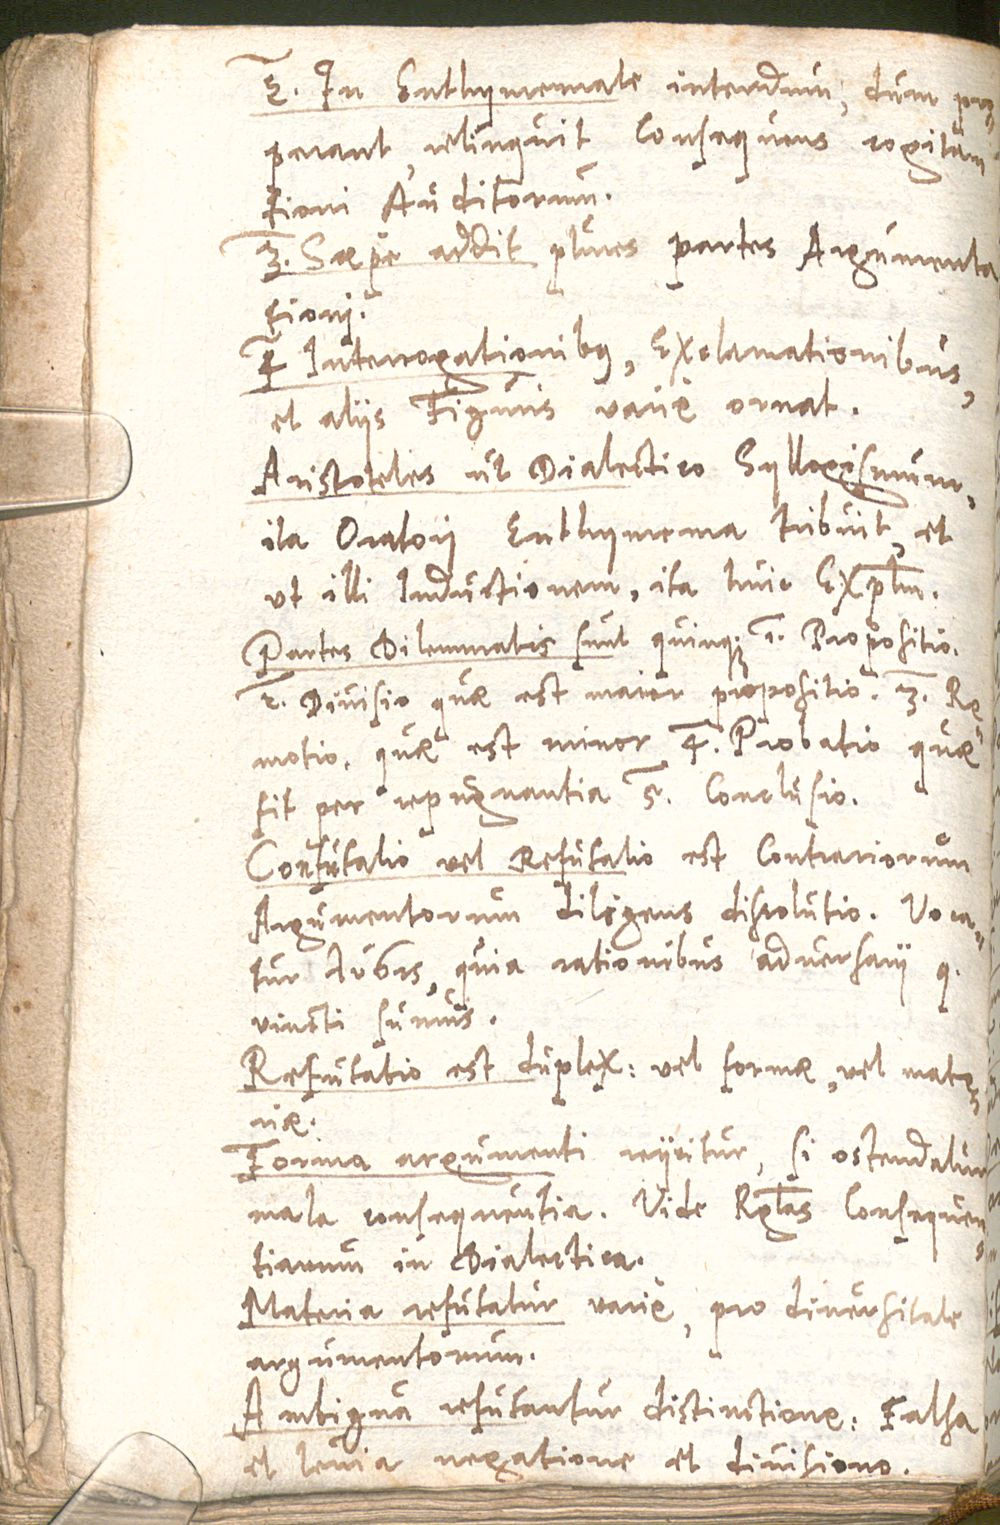 2. In Enthymemate interdum, dum pro
perant, relinquit Consequens cogita
tioni Auditorum.
3. Sæpe addit plures partes Argumenta
tioni.
4 Interrogationibq, Exclamationibus,
et alijs Figuris varie ornat.
Aristoteles ut Dialectico Syllogismum,
ita Oratorij Enthymema tribuit, et
ut illi Inductionem, ita huic Explm.
Partes Dilemmatis sunt quinq; 1. Propositio.
2. Diuisio quæ est maior propositio. 3. Re
motio, quæ est minor 4. Probatio quæ
fit per repugnantia 5. Conclusio.
Confutatio vel Refutatio est Contrariorum
Argumentorum diligens dissolutio. Voca
tur λύσις, quia rationibus adversarij q.
vincti sumus.
Refutatio est duplex: vel formæ, vel mate
riæ.
Forma argumenti reijcitur, si ostendatur
mala consequentia. Vide Rglas Consequen
tiarum in Dialectica.
Materia refutatur varie, pro diuersitate
argumentorum.
Ambigua refutantur distinctione: Falsa
et leuia negatione et diuisione.